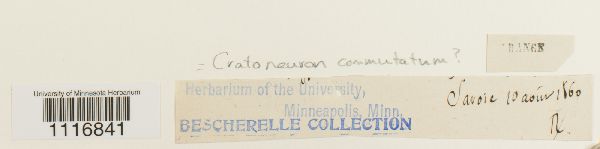 = Cratoneuron commutatum?
FRANCE
University of Minnesota Herbarium
1116841
Herbarium of the University,
Minneapolis, Minn.
BESCHERELLE COLLECTION
Savoie 10 août 1860